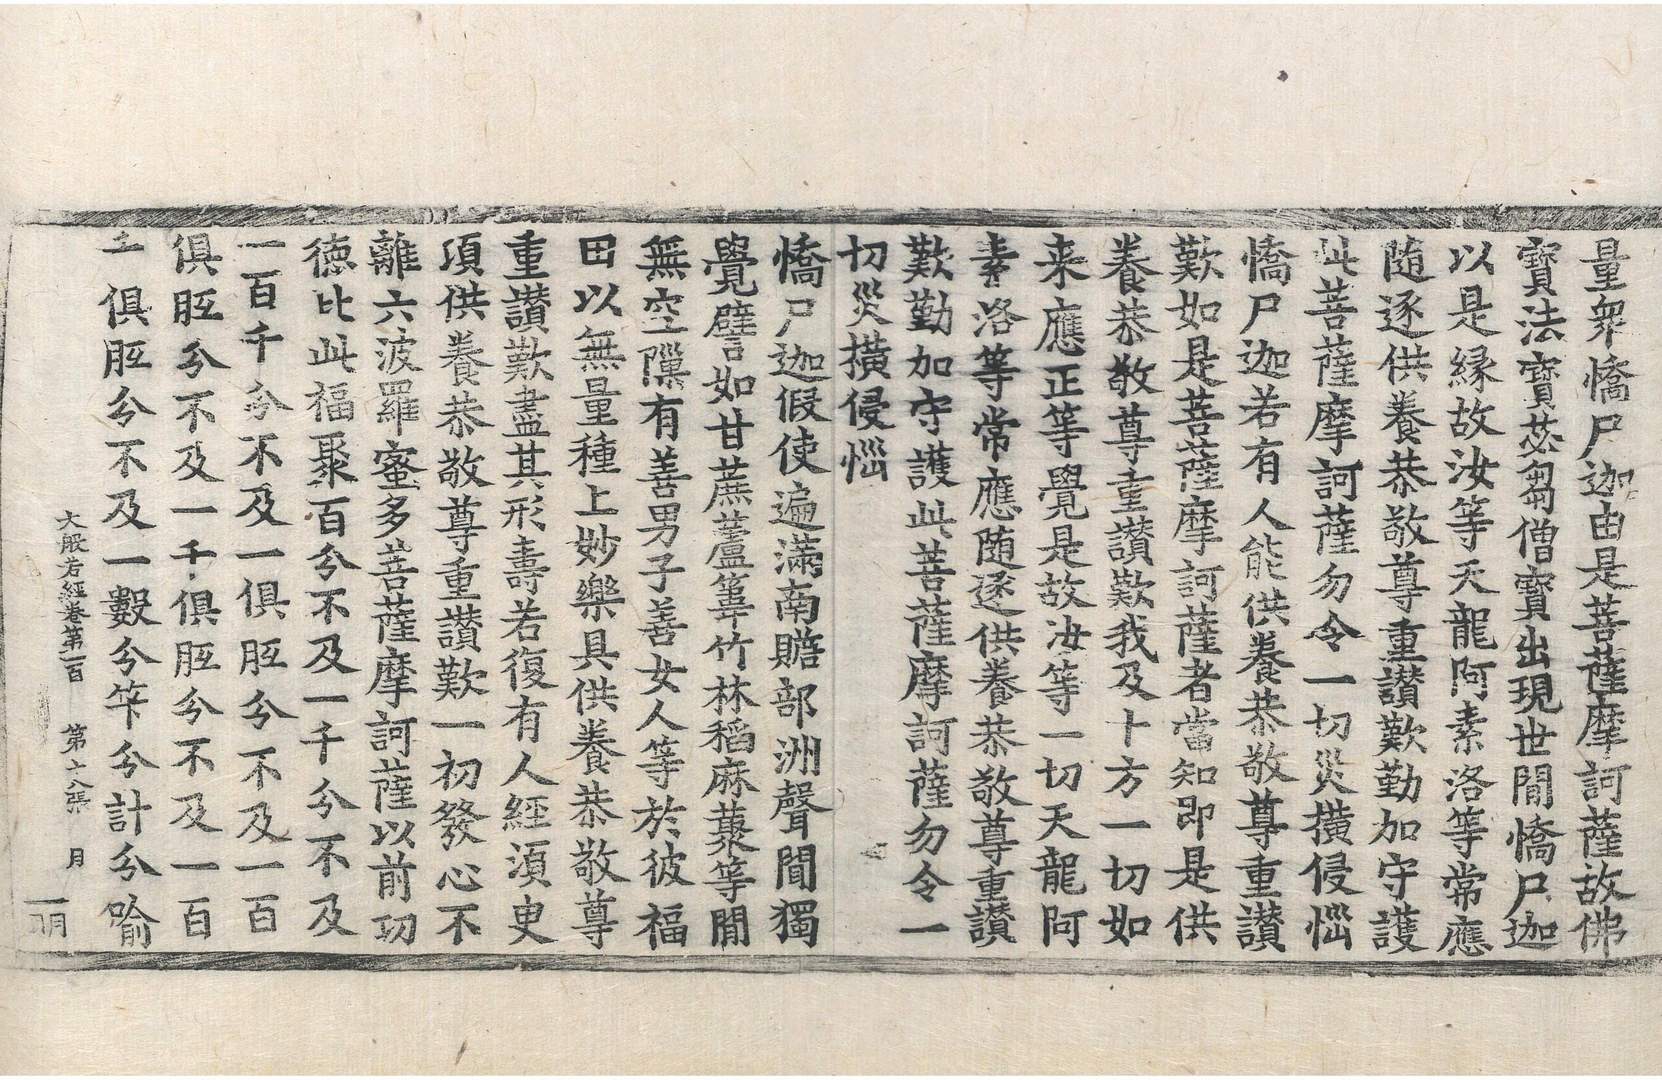 量眾憍尸迦由是菩薩摩訶薩故佛
寶法寶苾芻僧寶出現世間憍尸迦
以是緣故汝等天龍阿素洛等常應
随逐供養恭敬尊重讃歎勤加守護
此菩薩摩訶薩勿令一切災撗侵惱
憍尸迦若有人能供養恭敬尊重讃
歎如是菩薩摩訶薩者當知即是供
養恭敬尊重讃歎我及十方一切如
来應正等覺是故汝等一切天龍阿
素洛等常應随逐供養恭敬尊重讃
歎勤加守護此菩薩摩訶薩勿令一
切災撗侵惱
憍尸迦假使遍滿南贍部洲聲聞獨
覺譬如甘蔗蘆葦竹林稻麻䕯等間
無空隟有善男子善女人等於彼福
田以無量種上妙樂具供養恭敬尊
重讃歎盡其形壽若復有人經須臾
頃供養恭敬尊重讃歎一初發心不
離六波羅蜜多菩薩摩訶薩以前功
徳比此福聚百分不及一千分不及
一百千分不及一俱胝分不及一百
俱胝分不及一千俱胝分不及一百
千俱胝分不及一數分筭分計分喻
大般若經卷第一百 第十八張 月